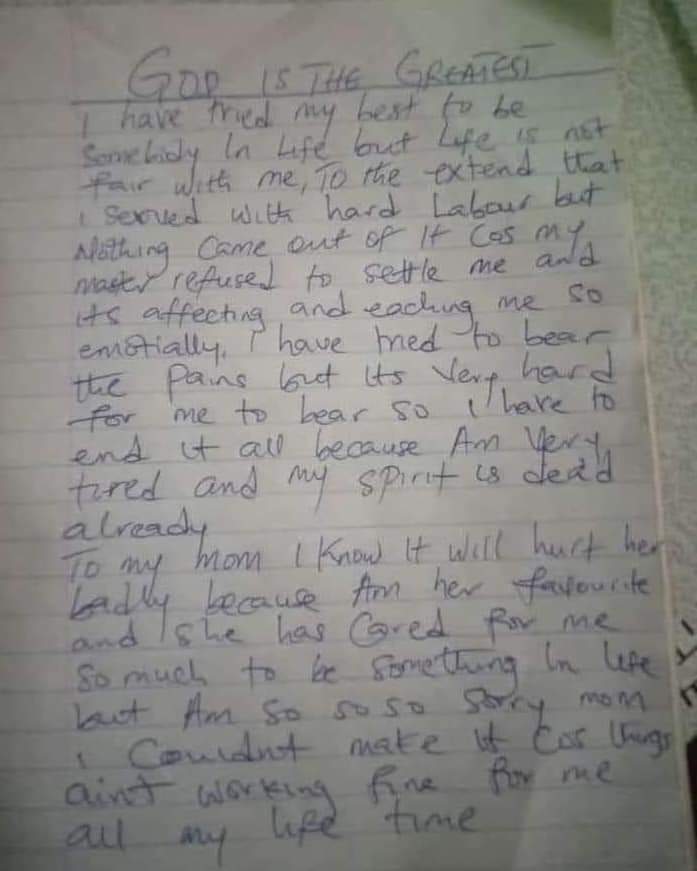 GOD IS THE GREATEST
I have tried my best to be
Somebody In Life but Life is not
fair with me, To the extend that
i served with hard Labour but
Nothing Came out of It Cos my
master refused to settle me and
its affecting and eaching me so
emotially. I have tried to bear
the Pains but Its Very hard
for me to bear so i have to
end it all because Am Very
tired and my spirit is dead
already
To my mom I Know It will hurt her
badly because Am her favourite
and she has Cared for me
So much to be Something In Life
but Am So so so Sorry mom
i Couldnt make it Cos things
aint working fine for me
all my life time